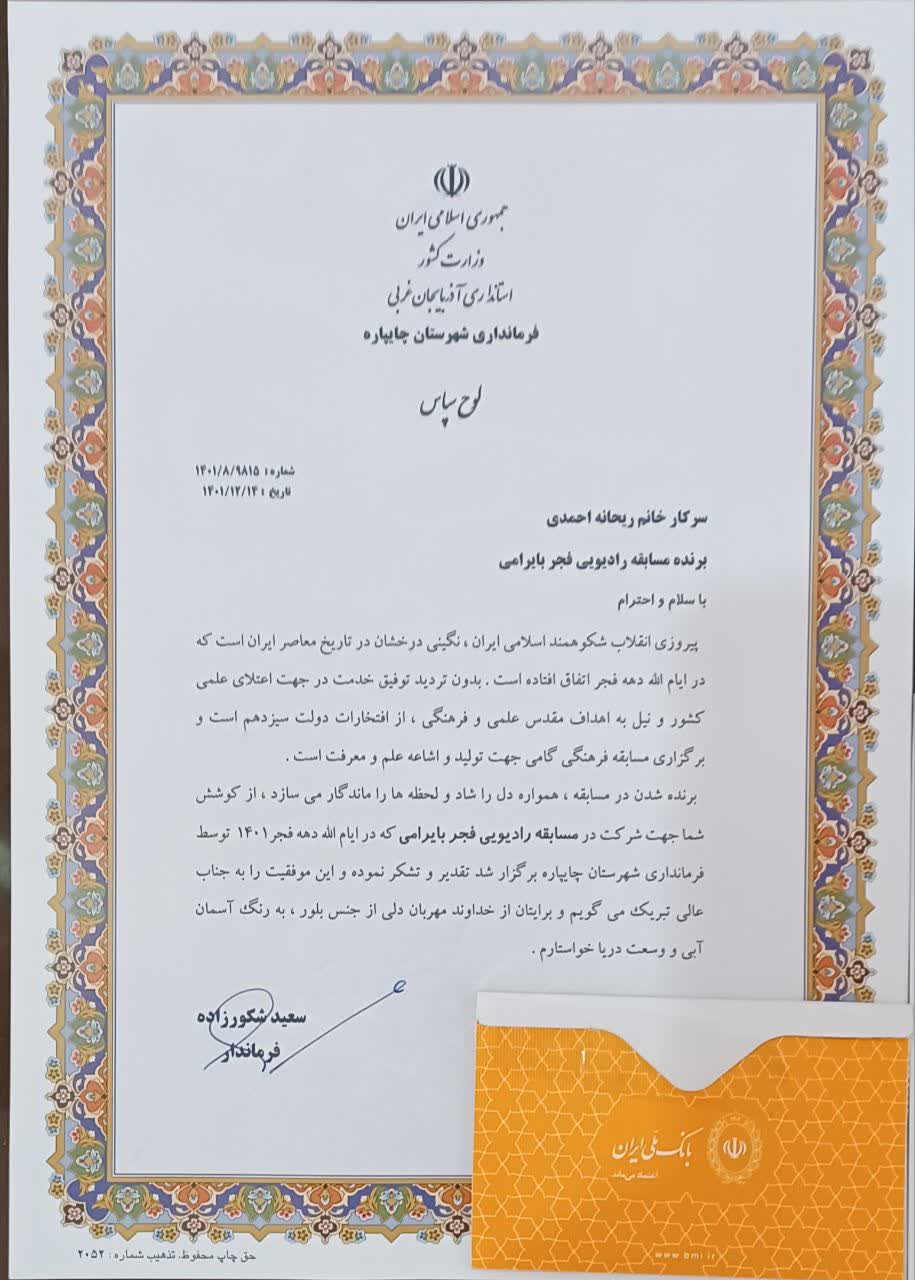 جمهوری اسلامی ایران
وزارت کشور
استانداری آذربایجان غربی
فرمانداری شهرستان چایپاره
لوح سپاس
شماره: ۱۴۰۱/۸/۹۸۱۵
تاریخ: ۱۴۰۱/۱۲/۱۴
سرکار خانم ریحانه احمدی
برنده مسابقه رادیویی فجر بایرامی
با سلام و احترام
پیروزی انقلاب شکوهمند اسلامی ایران ، نگینی درخشان در تاریخ معاصر ایران است که
در ایام الله دهه فجر اتفاق افتاده است . بدون تردید توفیق خدمت در جهت اعتلای علمی
کشور و نیل به اهداف مقدس علمی و فرهنگی ، از افتخارات دولت سیزدهم است و
برگزاری مسابقه فرهنگی گامی جهت تولید و اشاعه علم و معرفت است .
برنده شدن در مسابقه ، همواره دل را شاد و لحظه ها را ماندگار می سازد ، از کوشش
شما جهت شرکت در مسابقه رادیویی فجر بایرامی که در ایام الله دهه فجر ۱۴۰۱ توسط
فرمانداری شهرستان چایپاره برگزار شد تقدیر و تشکر نموده و این موفقیت را به جناب
عالی تبریک می گویم و برایتان از خداوند مهربان دلی از جنس بلور ، به رنگ آسمان
آبی و وسعت دریا خواستارم .
سعید شکورزاده
فرماندار
بانک ملی ایران
اعتماد می‌ماند
www.bmi.ir
حق چاپ محفوظ، تذهیب شماره: ۲۰۵۲